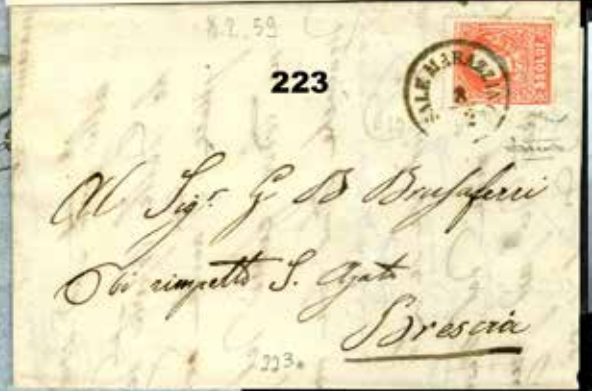 8.2.59
223
ALE MARAZZ
8
2
5 SOLDI
Al Sigr G B Brusaferri
Di rimpetto S. Agata
Brescia
223.